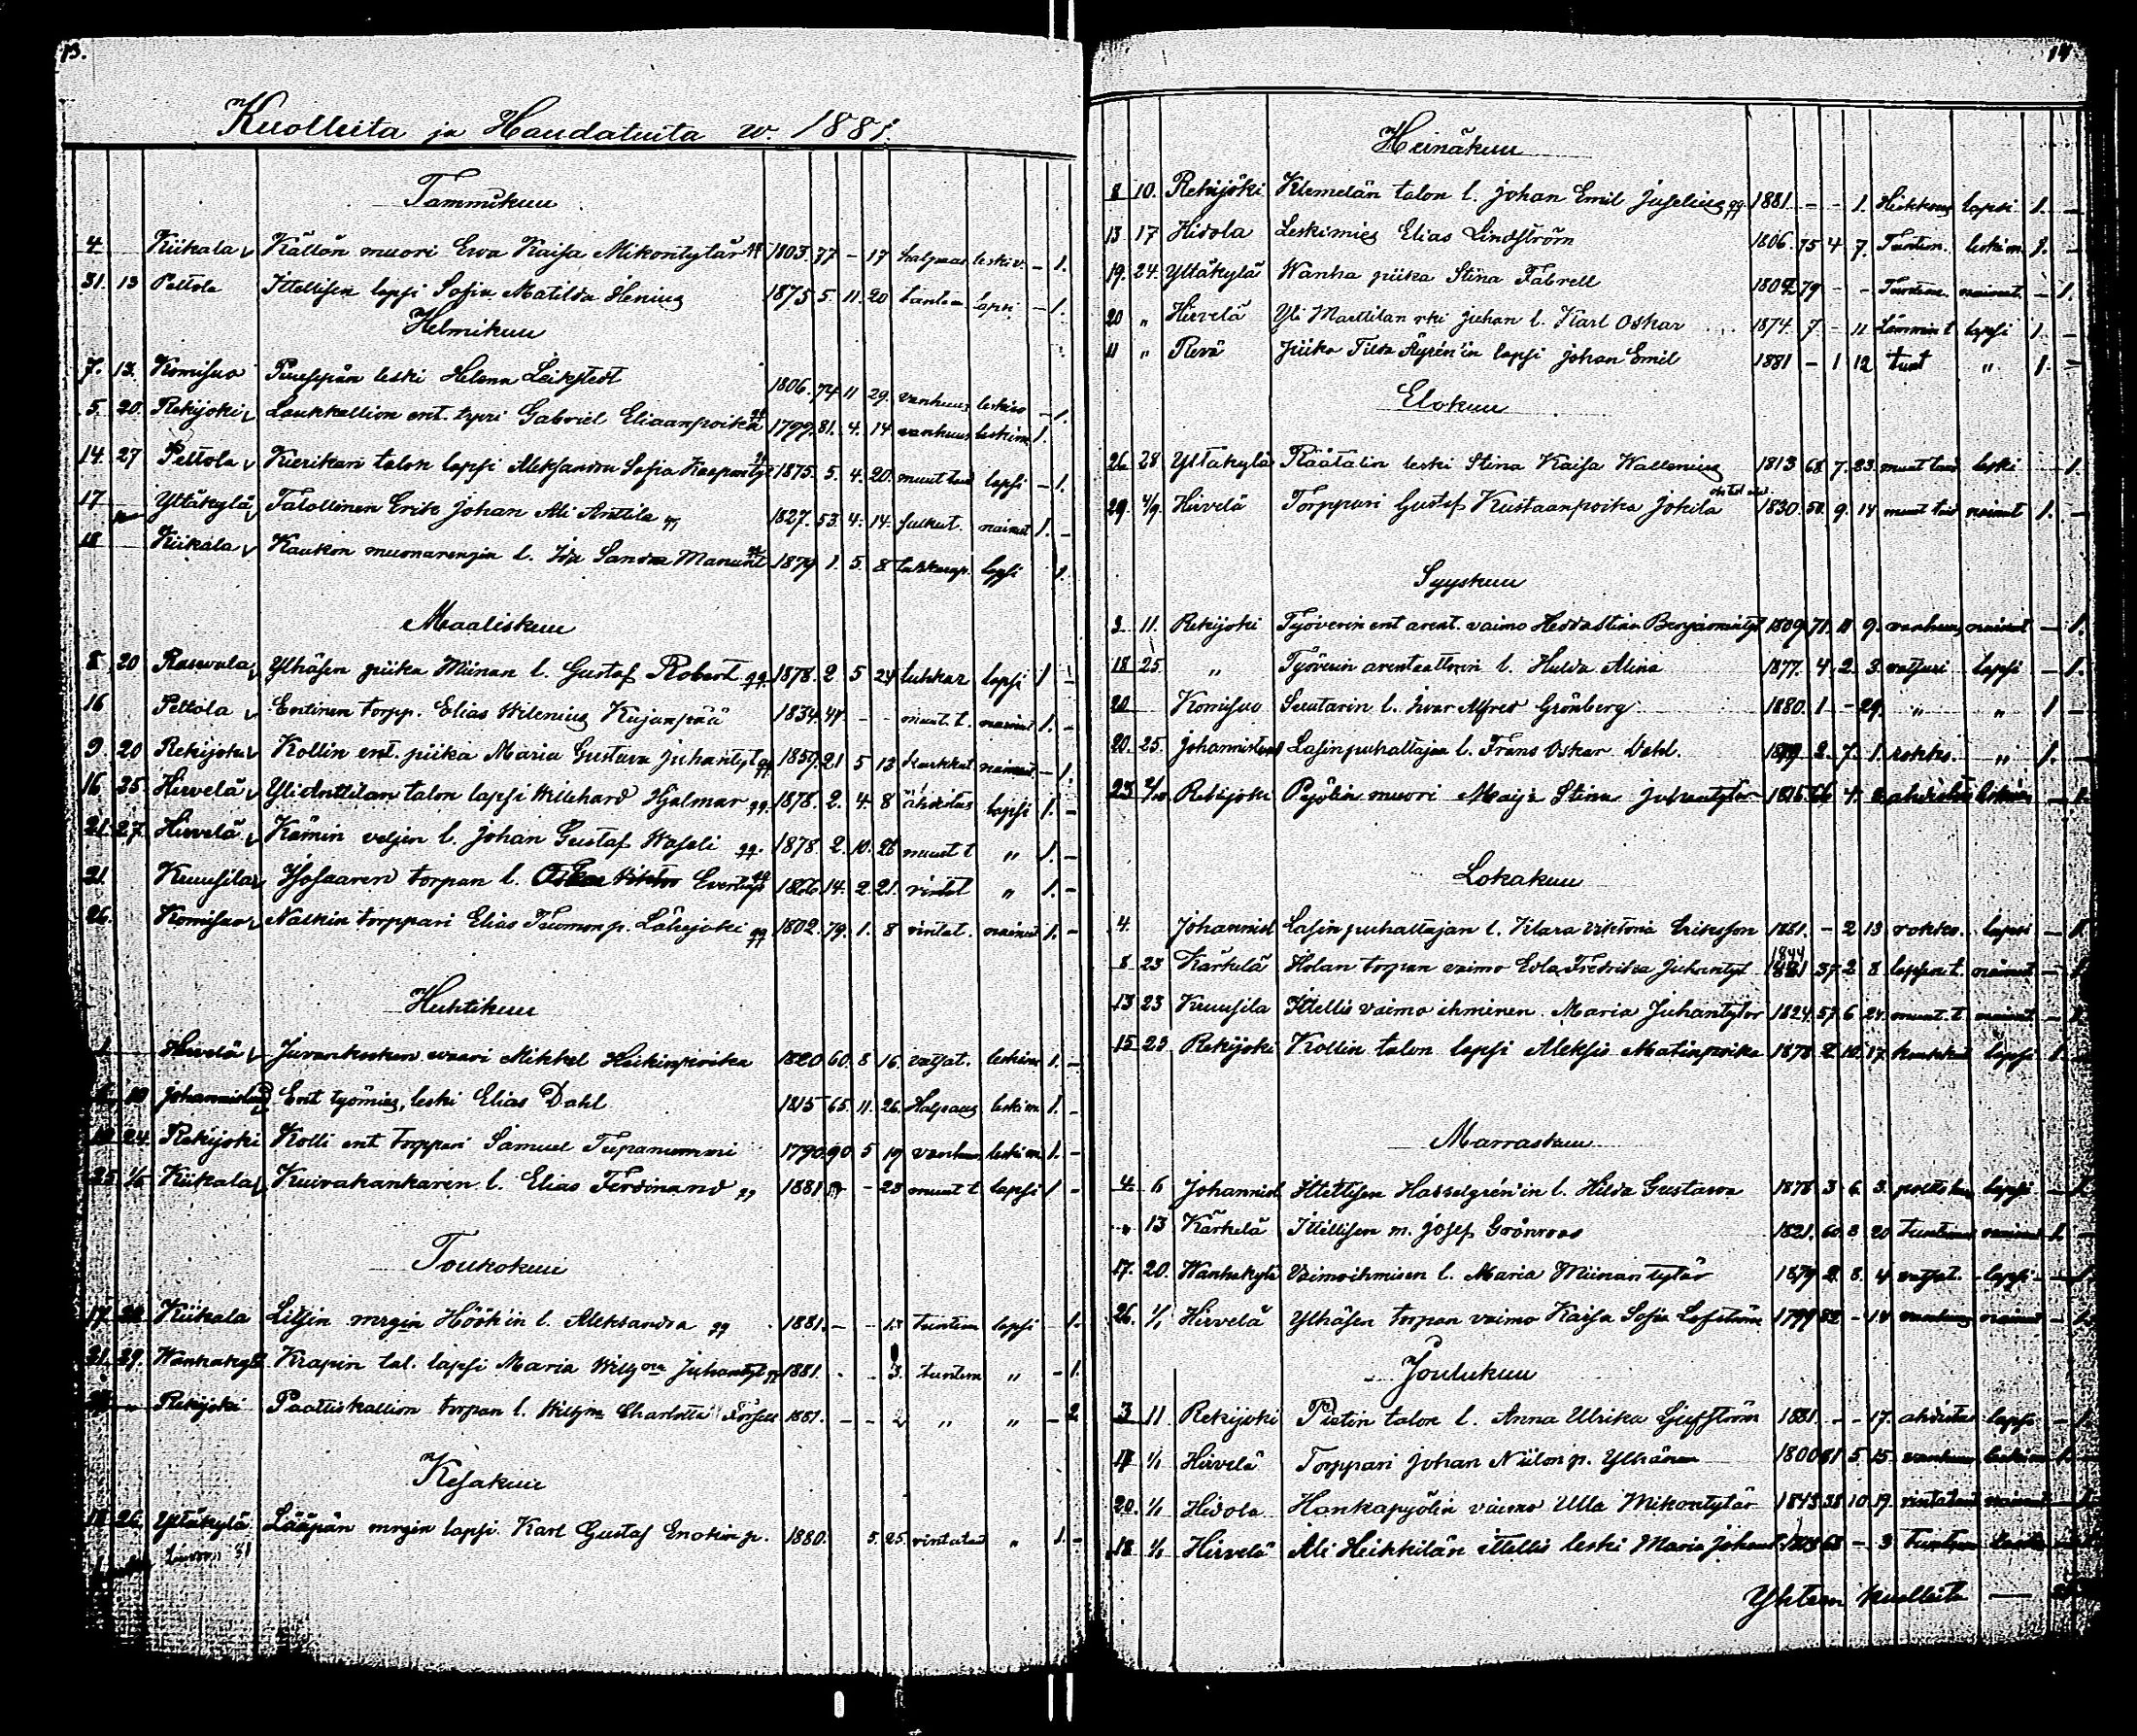 13.
Kuolleita ja Haudatuita w. 1881.
Tammikuu
4 Kiikala Källän muori Ewa Kaisa Mikontytär 1803. 77 - 17 halpaus leskiv. - 1.
31. 13 Peltola Ittellisen lapsi Sofia Matilda Henius 1875. 5. 11. 20 lapsi - 1.
Helmikuu
7. 13. Komisuo Puusepän leski Helena Leikstedt 1806. 74 11 29. vanhuus leskiv. - 1.
5. 20. Rekijoki Laukkallion ent. tyvri Gabriel Eliaanpoika 1799. 81. 4. 14 vanhuus leskim 1.
14. 27 Peltola Kierikan talon lapsi Aleksandra Sofia 1875. 5. 4. 20. muut taud lapsi - 1.
17 Yltäkylä Talollinen Erik Johan Ali Anttila 1827. 53. 4. 14. nainut 1. -
18 Kiikala Kaukon muonarengin l. Ida Sandra 1879 1. 5. 8 lapsi 1.
Maaliskuu
8. 20 Rasvala Ylhäsen piika Miinan l. Gustaf Robert 1878. 2 5 24 tuhkar lapsi 1 -
16 Peltola Entinen torpp. Elias Wilenius Kujanpää 1834. 47. - - muut. t. nainut 1. -
9. 20 Rekijoki Kollin ent. piika Maria Gustava Juhantyt 1859. 21 5 13 naimat. - 1.
16 25. Hirvelä Yli Anttilan talon lapsi Wilehard Hjalmar 1878. 2. 4. 8 ähdistus lapsi 1. -
21. 27. Hirvelä Kämin veljen l. Johan Gustaf Waseli 1878. 2. 10. 26 muut t " 1. -
21 Kuusila Isosaaren torpan l. 1866. 14. 2. 21. rintat " 1. -
26. Komisuo Naskin torppari Elias Tuomonp. Lähejoki 1802. 79. 1. 8 rintat. nainut 1. -
Huhtikuu
1 Hirvelä Juvankosken waari Mikkel Heikinpoika 1820 60. 8 16. vatsat. leskim 1. -
Johannislund Ent työmies, leski Elias Dahl 1815 65. 11. 26. Halpaus leskim 1. -
24. Rekijoki Kolli ent torppari Samuel Tupanummi 1790. 90 5 19 vanhuus leskim 1. -
25. 1/5 Kiikala Kuivakankaren l. Elias Ferdinand 1881 - 23 muut t lapsi 1 -
Toukokuu
17. 22. Kiikala Liljin mrgin Höök'in l. Aleksandra 1881. - - 13 tuntem lapsi 1.
21. 29. Wanhakylä Krapin tal. lapsi Maria Wilh:na Juhantyt 1881. - - 3. tuntem " - 1.
" Rekijoki Paatiskallion torpan l. Wilh:na Charlotta Forsell 1881. - - " " - 2
Kesäkuu
18. 26. Yltäkylä Lääpän mrgin lapsi Karl Gustaf Enokin p. 1880. 5. 25. rintataud " 1. -
14
Heinäkuu
8 10. Rekijoki Klemelän talon l. Johan Emil Juselius 1881 - - 1. lapsi 1. -
13 17 Hidola Leskimies Elias Lindström 1806. 75 4 7. Tuntem. leskim. 1. -
19. 24. Yltäkylä Wanha piika Stina Fabrell 1802 79 - - Tuntem. naimat. - 1.
20 " Hirvelä Yli Marttilan rki Juhan l. Karl Oskar 1874. 7. - 11 lapsi 1. -
11 " Revä Piika Tilda Äyrén'in lapsi Johan Emil 1881 - 1 12 tunt " 1. -
Elokuu
26 28 Yltäkylä Räätälin leski Stina Kaisa Wallenius 1813 68. 7. 23. muut taud leski - 1.
29 4/9 Hirvelä Torppari Gustaf Kustaanpoika Jokila 1830. 50. 9. 14 muut taud nainut 1. -
Syyskuu
3 11. Rekijoki Työverin ent arent. vaimo Hedda Stina Benjamintyt 1809. 71. 11 9. vanhuus naimat - 1.
18 25. " Työverin arentaattorin l. Hulda Alina 1877. 4. 2. 3. lapsi - 1.
20 Komisuo Suutarin l. Ivar Alfred Grönberg 1880. 1 - 29. " " 1 -
20. 25. Johannislund Lasinpuhaltajan l. Frans Oskar Dahl. 2. 7. 1. rokko. " 1. -
23 2/10 Rekijoki Pyölin muori Maija Stina Juhantytär 1815 66 4. - 1.
Lokakuu
4. Johannisl Lasinpuhaltajan l. Klara Viktoria Eriksson 1881. - 2 13 rokko. lapsi - 1.
8 23 Kärkelä Holan torpan vaimo Eva Fredrika Juhantyt 1844 37 2 8 lapsen t. naimat - 1.
13 23 Kuusila Ittellis vaimo ihminen Maria Juhantytär 1824. 57. 6 24. muut. t naimat - 1.
15 23 Rekijoki Kollin talon lapsi Aleksis Matinpoika 1878 2. 10. 17. lapsi 1. -
Marraskuu
4. 6 Johannisl Ittellisen Hasselgrén'in l. Hilda Gustava 1878 3 6. 3. lapsi - 1.
" 13 Kärkelä Ittellisen m. Josef Grönroos 1821. 60. 3 20 naimat 1 -
17. 20. Wanhakylä Vaimoihmisen l. Maria Miinantytär 1879 2. 8. 4 vatsat. lapsi - 1.
26. 1/1 Hirvelä Ylhäsen torpan vaimo Kaisa Sofia Lofström 1799 82 - 14 vanhuus naimat - 1.
Joulukuu
3 11 Rekijoki Pietin talon l. Anna Ulrika Ljufström 1881. - - 17. ahdistus lapsi - 1.
17 1/1 Hirvelä Torppari Johan Niilon p. Ylhänen 1800 81 5 15. vanhuus leskim 1. -
20. 1/1 Hidola Hankapyölin vaimo Ulla Mikontytär 1843 38 10. 19. rintataud naimat - 1.
18 1/1 Hirvelä Ali Heikkilän ittellis leski Maria Johant. 68 - 3 leski
Yhteen kuolleita —